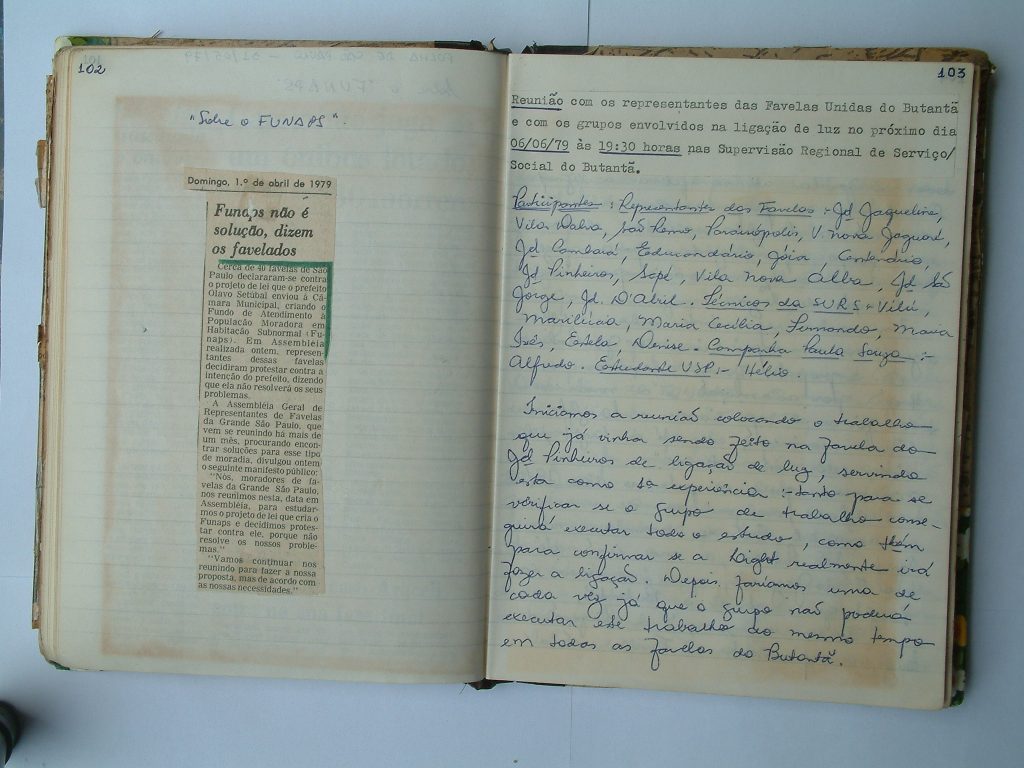 102
"Sobre o FUNAPS".
Domingo, 1.º de abril de 1979
Funaps não é
solução, dizem
os favelados
Cerca de 40 favelas de São
Paulo declararam-se contra
o projeto de lei que o prefeito
Olavo Setúbal enviou à Câ-
mara Municipal, criando o
Fundo de Atendimento à
População Moradora em
Habitação Subnormal (Fu-
naps). Em Assembléia
realizada ontem, represen-
tantes dessas favelas
decidiram protestar contra a
intenção do prefeito, dizendo
que ela não resolverá os seus
problemas.
A Assembléia Geral de
Representantes de Favelas
da Grande São Paulo, que
vem se reunindo há mais de
um mês, procurando encon-
trar soluções para esse tipo
de moradia, divulgou ontem
o seguinte manifesto público:
"Nós, moradores de fa-
velas da Grande São Paulo,
nos reunimos nesta, data em
Assembléia, para estudar-
mos o projeto de lei que cria o
Funaps e decidimos protes-
tar contra ele, porque não
resolve os nossos proble-
mas."
"Vamos continuar nos
reunindo para fazer a nossa
proposta, mas de acordo com
as nossas necessidades."
103
Reunião com os representantes das Favelas Unidas do Butantã
e com os grupos envolvidos na ligação de luz no próximo dia
06/06/79 às 19:30 horas nas Supervisão Regional de Serviço/
Social do Butantã.
Participantes: Representante das Favelas: Jd Jaqueline,
Vila Dalva, São Remo, Paraisópolis, V. nova Jaguaré,
Jd Cambará, Educandário, Jóia, Centenário,
Jd Pinheiros, Sapé, Vila Nova Alba, Jd São
Jorge, Jd. D'Abril. Técnicos da SURS:
Marilúcia, Maria Cecília, Fernando, Maria
Inês, Estela, Denise. Companha Paula Souza :-
Alfredo. Estudante USP:- Hélio.
Iniciamos a reunião colocando o trabalho
que já vinha sendo feito na favela do
Jd Pinheiros de ligação de luz, servindo
esta como 1ª experiência :- tanto para se
verificar se o grupo de trabalho conse-
guirá executar todo o estudo, como tbém
para confirmar se a Light realmente irá
fazer a ligação. Depois faríamos uma de
cada vez já que o grupo não poderá
executar este trabalho ao mesmo tempo
em todas as favelas do Butantã.